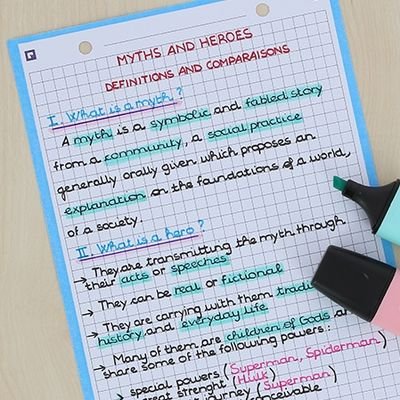 MYTHS AND HEROES
DEFINITIONS AND COMPARAISONS
I. What is a myth?
A myth is a symbolic and fabled story
from a community, a social practice
generally orally given which proposes an
explanation on the foundations of a world,
of a society.
II. What is a hero?
→ They are transmitting the myth through
their acts or speeches
→ They can be real or fictional
→ They are carrying with them
history, and everyday life
→ Many of them are children of Gods
share some of the following powers:
→ special powers (Superman, Spiderman)
strenght (Hulk)
journey (Superman)